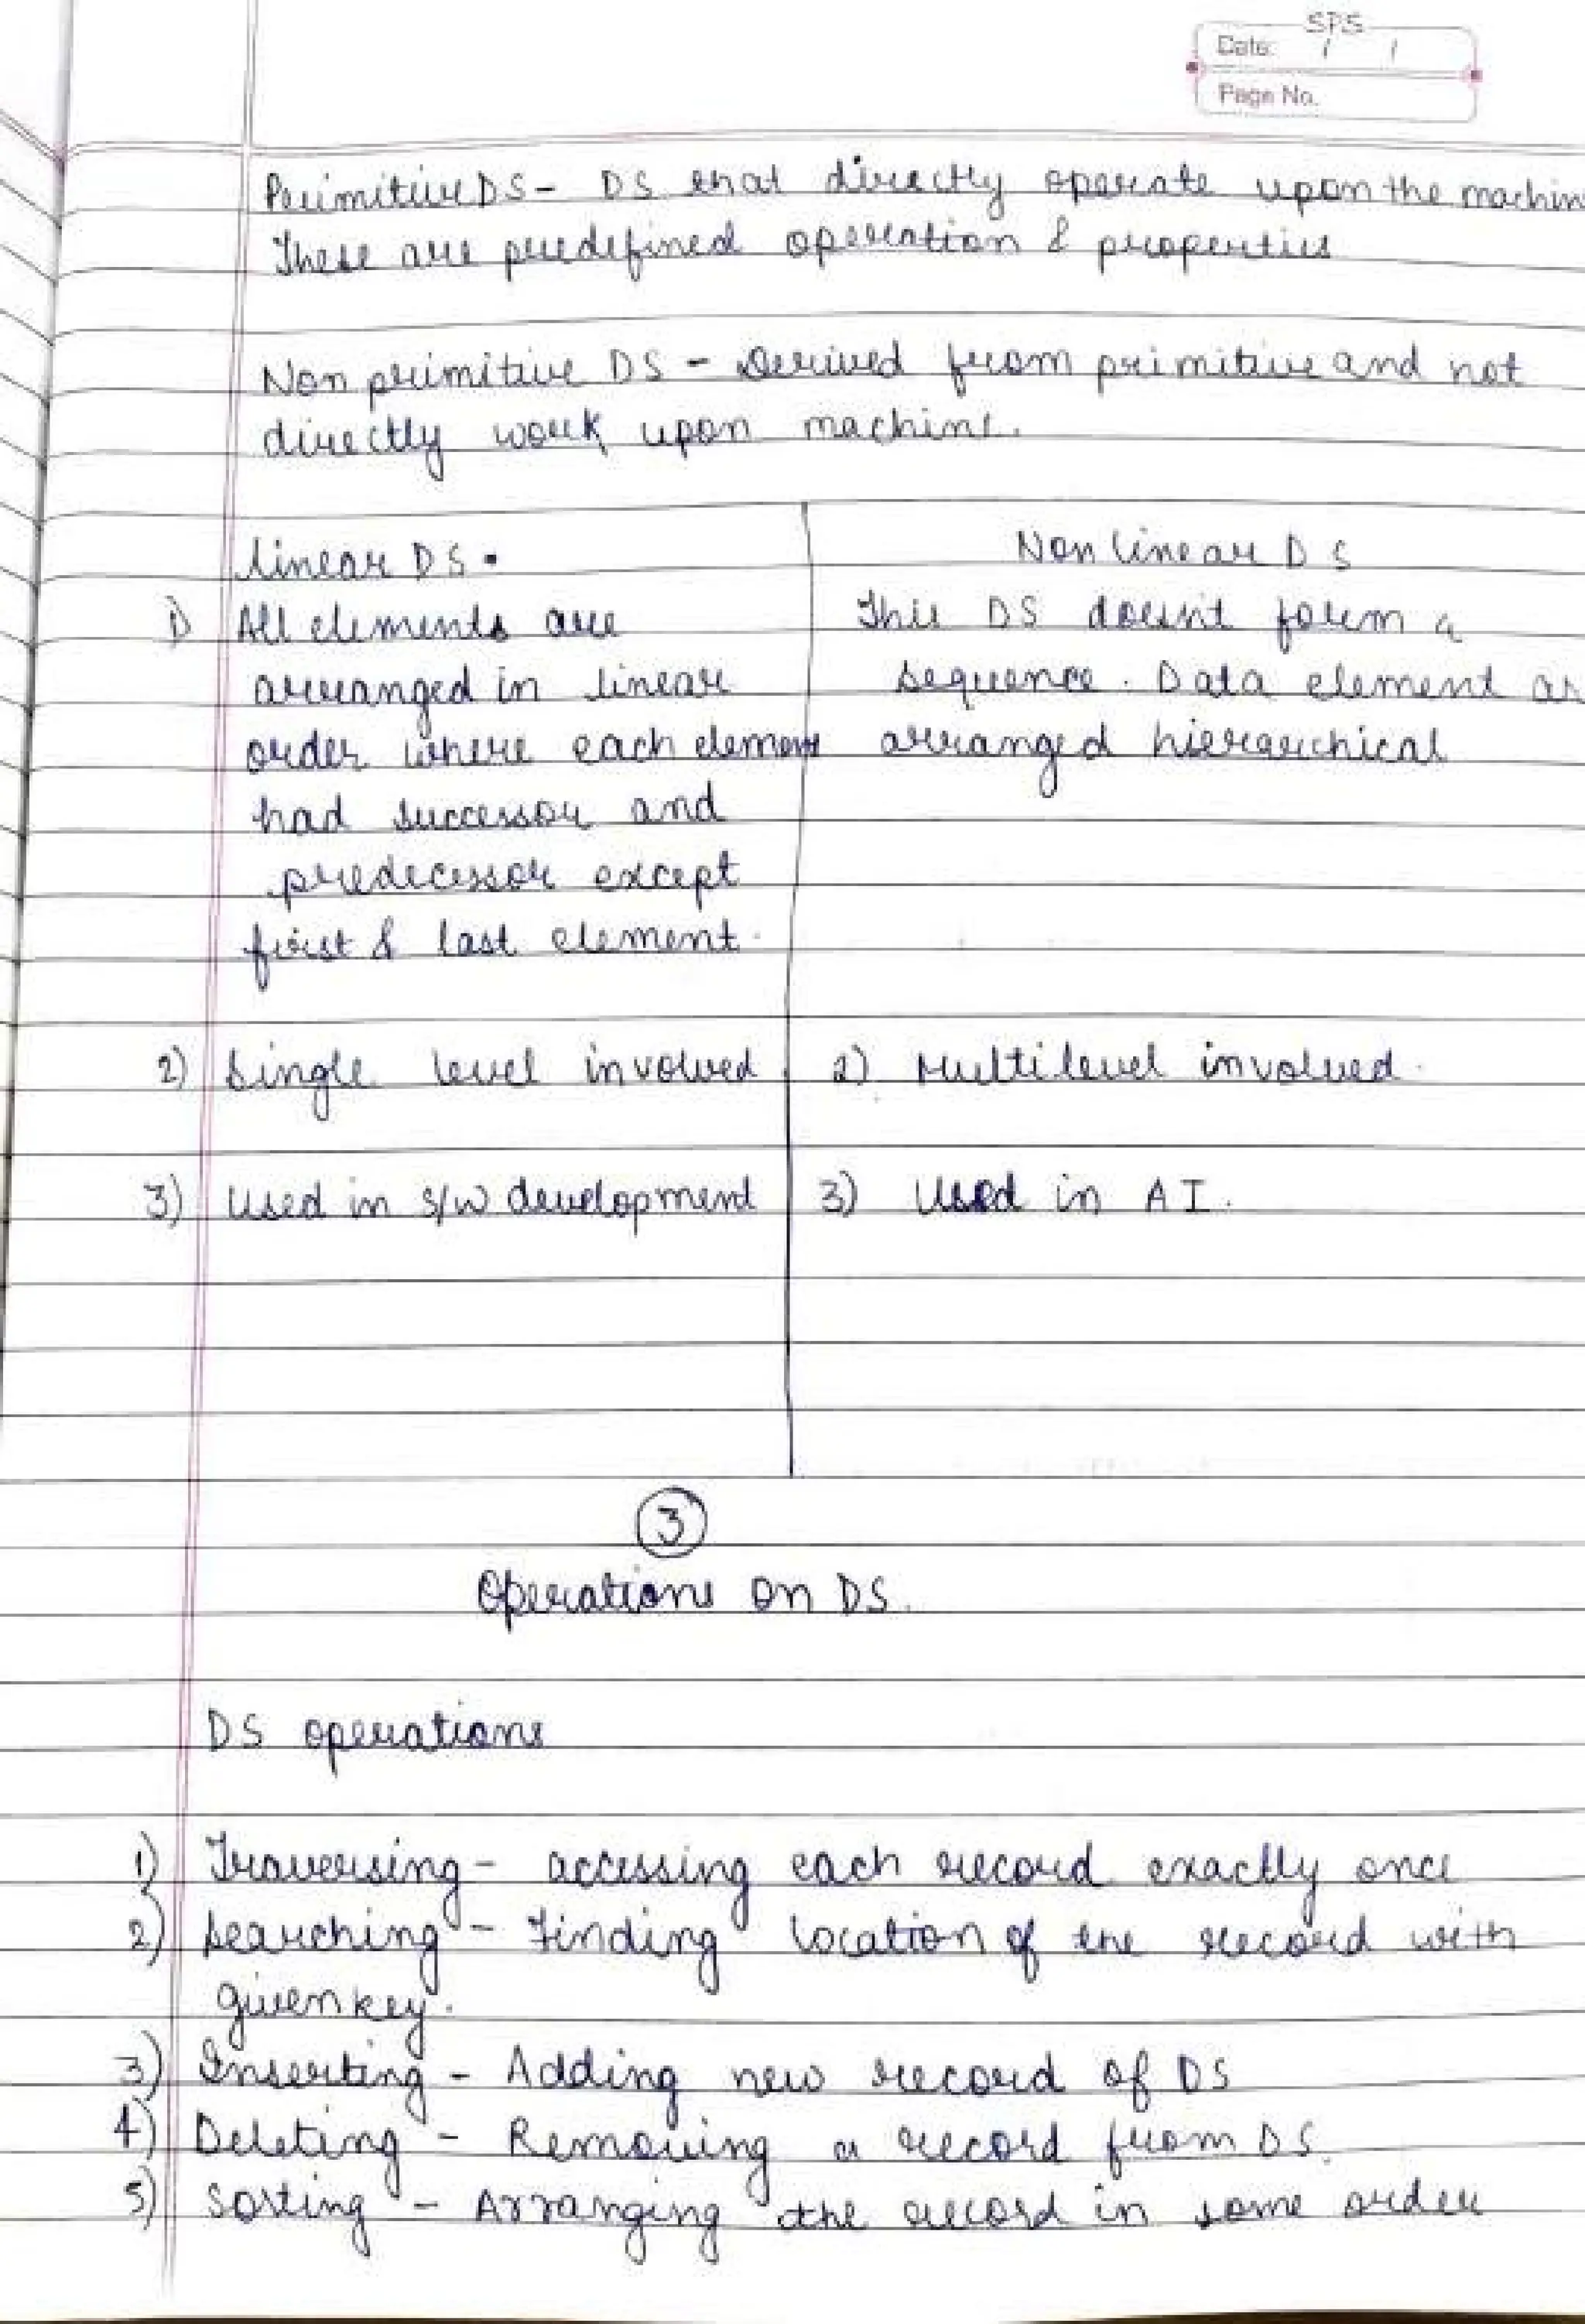 SPS
Date: / /
Page No.
Primitive DS - DS that directly operate upon the machin
These are predefined operation & properties
Non primitive DS - Derived from primitive and not
directly work upon machine.
linear DS.
Non linear DS
1) All elements are
arranged in linear
order where each element
had successor and
predecessor except
first & last element.
This DS doesn't form a
sequence. Data element ar
arranged hierarchical
2) Single level involved
2) Multilevel involved.
3) Used in S/W development
3) Used in AI.
3
Operations on DS.
DS operations
1) Traversing - accessing each record exactly once
2) Searching - Finding location of the record with
given key.
3) Inserting - Adding new record of DS
4) Deleting - Removing a record from DS.
5) Sorting - Arranging the record in some order